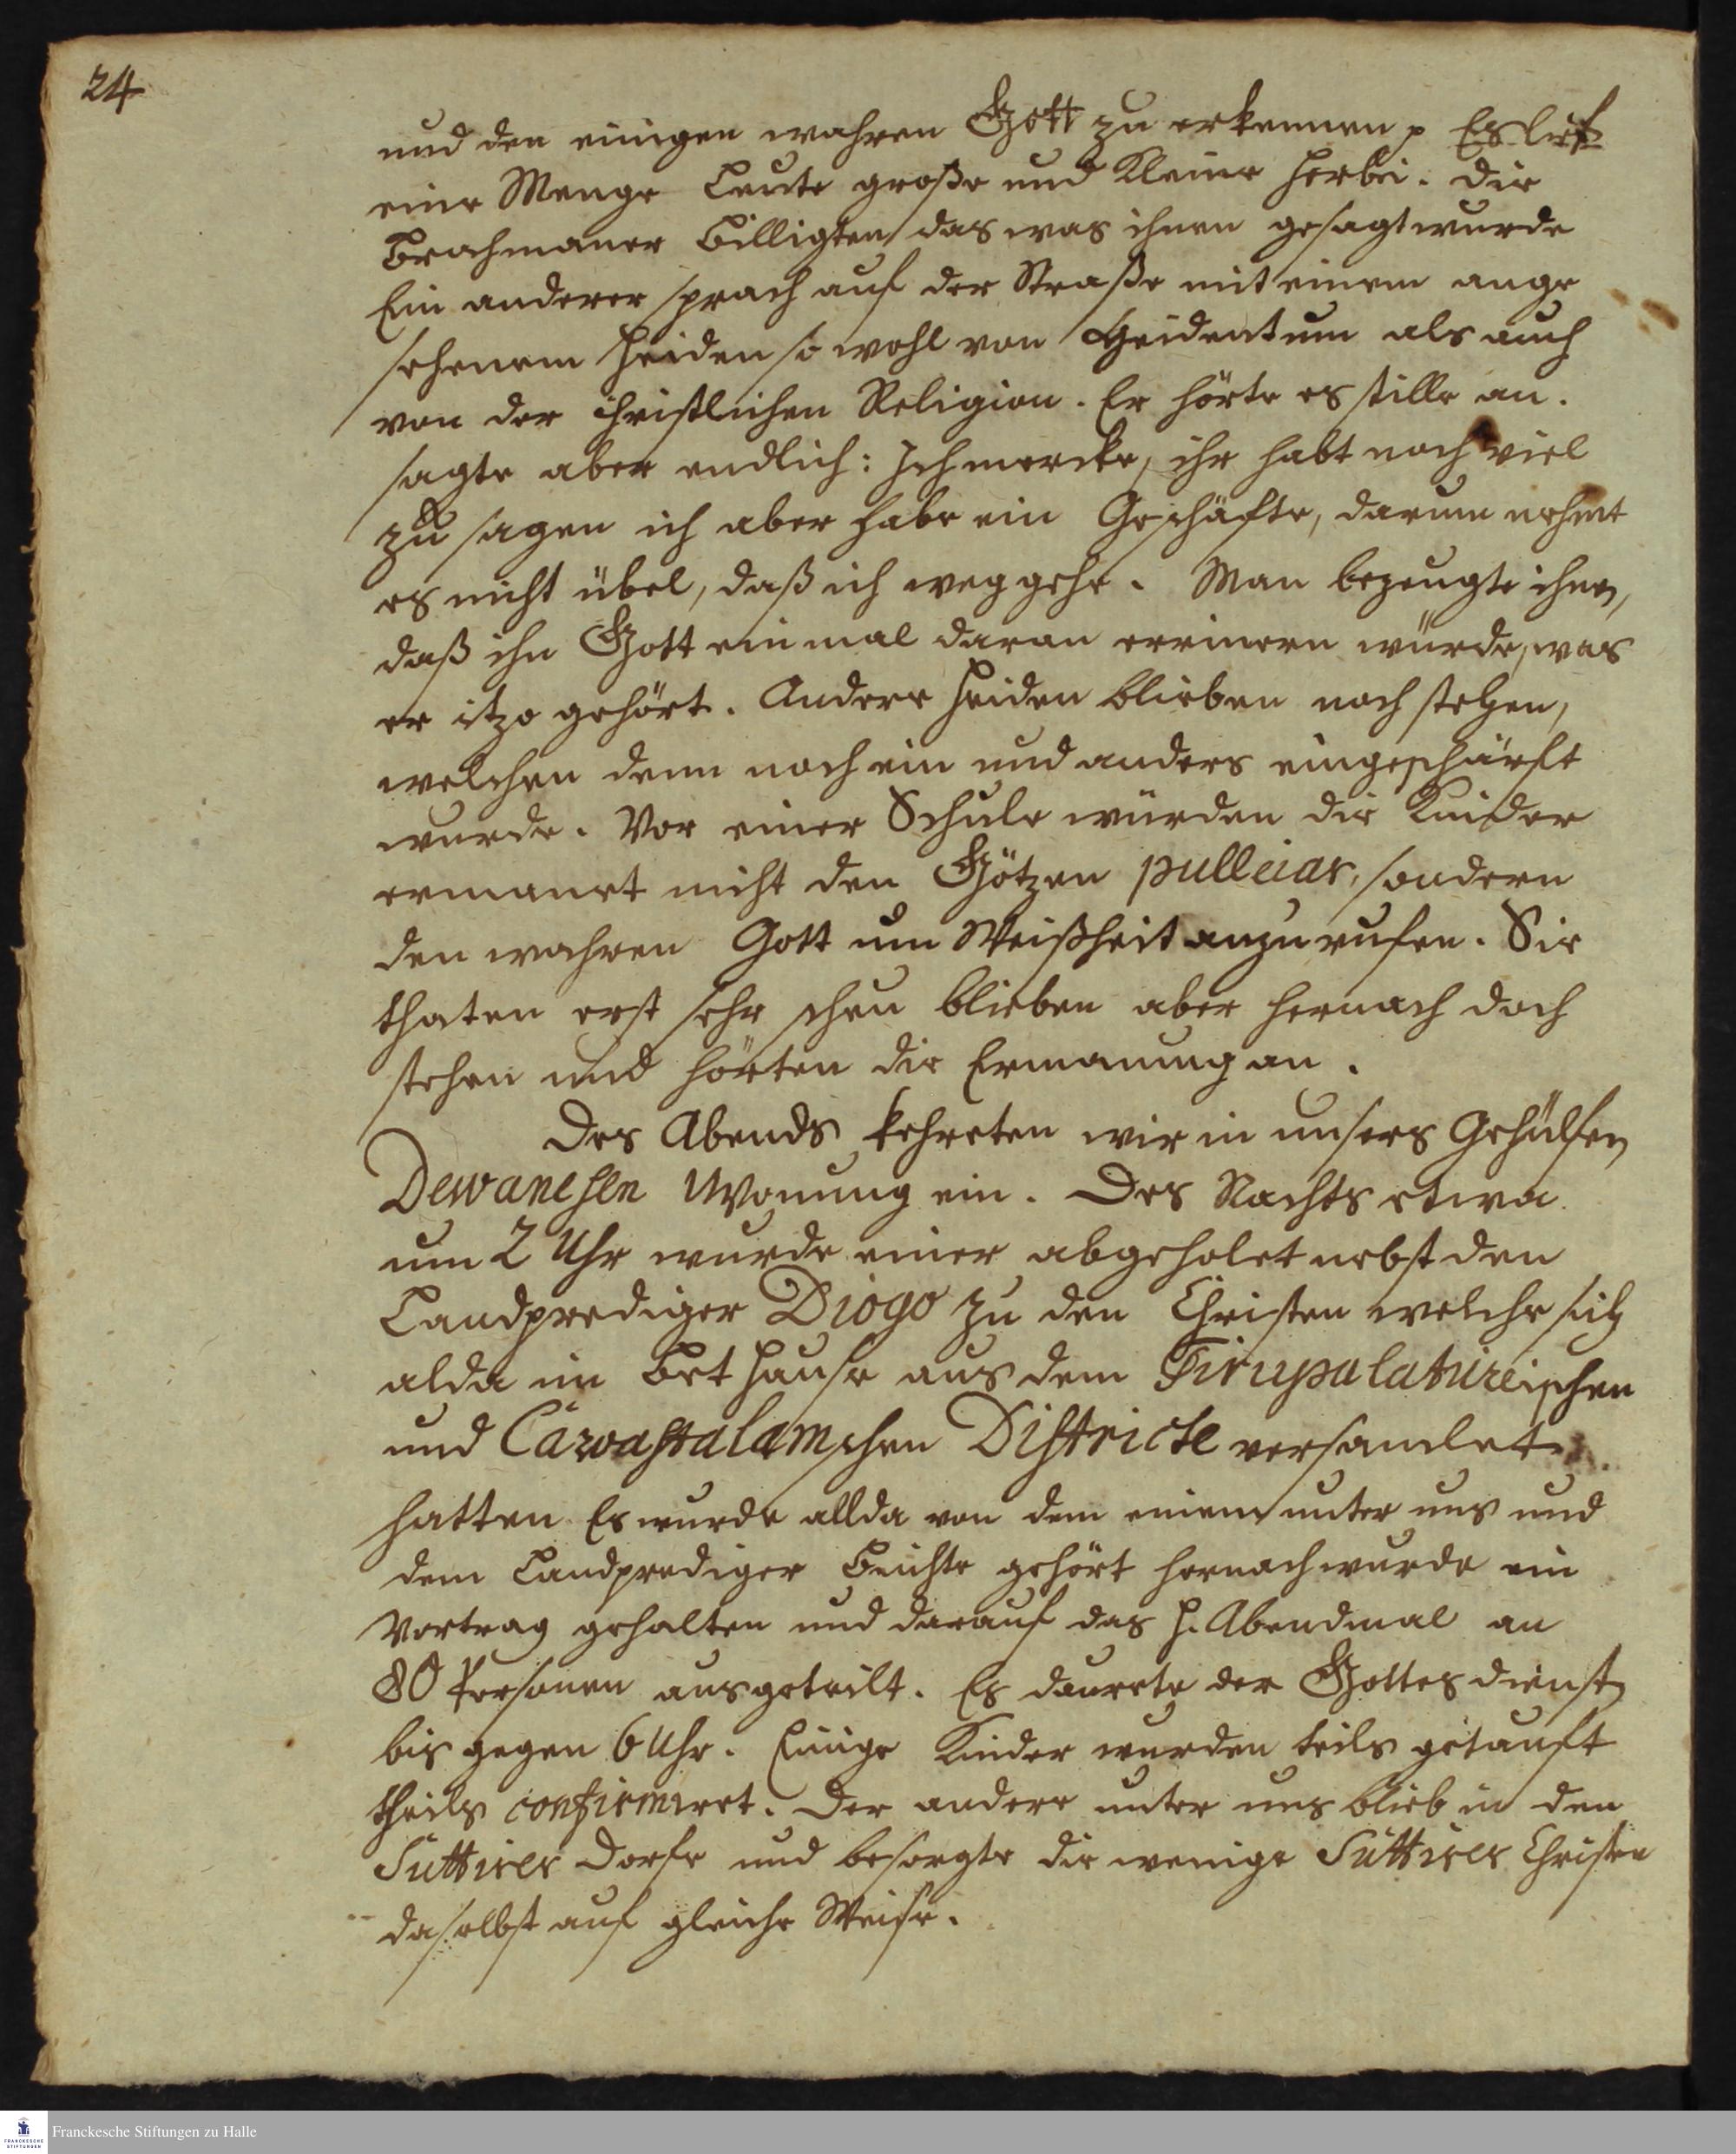 24
und den einigen wahren Gott zu erkennen p Es lief
eine Menge Leute große und Kleine herbei. Die
Brachmaner billigten das was ihnen gesagt wurde
Ein anderer sprach auf der Straße mit einem ange
sehenem Heiden so wohl von Heidentum als auch
von der christlichen Religion. Er hörte es stille an.
sagte aber endlich: Ich mercke, ihr habt noch viel
zu sagen ich aber habe ein Geschäfte, darum nehmt
es nicht übel, daß ich weg gehe. Man bezeugte ihm,
daß ihn Gott ein mal daran erinnern würde, was
er itzo gehört. Andere Heiden blieben noch stehen,
welchen denn noch ein und anders eingeschärft
wurde. Vor einer Schule würden die Kinder
ermanet nicht den Götzen pulleiar, sondern
den wahren Gott um Weißheit anzurufen. Sie
thaten erst sehr scheu blieben aber hernach doch
stehen und hörten die Ermanung an.
Des Abends kehreten wir in unsers Gehülfen
Dewanesen Wonung ein. Des Nachts etwa
um 2 Uhr wurde einer abgeholet nebst den
Landprediger Diogo zu den Christen welche sich
alda im Bethause aus dem Tirupalatureischen
und Carwastalamschen Districte versamlet
hatten Es wurde allda von dem einem unter uns und
dem Landprediger Beichte gehört hernach wurde ein
Vortrag gehalten und darauf das H. Abendmal an
80 Personen ausgeteilt. Es daurete der Gottesdienst
bis gegen 6 Uhr. Einige Kinder wurden teils getauft
theils confirmiret. Der andere unter uns blieb in den
Suttirer Dorfe und besorgte die wenige Suttirer Christen
daselbst auf gleiche Weise.
Franckesche Stiftungen zu Halle